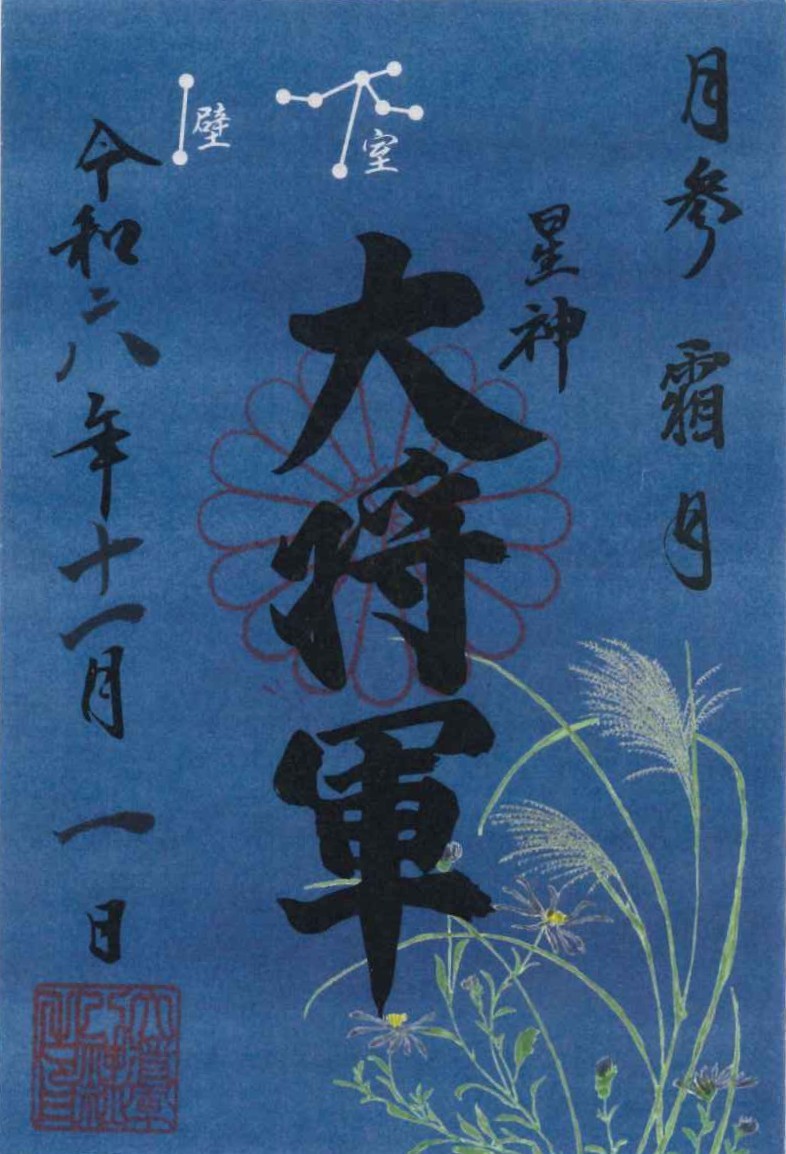 月参 霜月
星神
室
大将軍
壁
令和六年十一月 一日